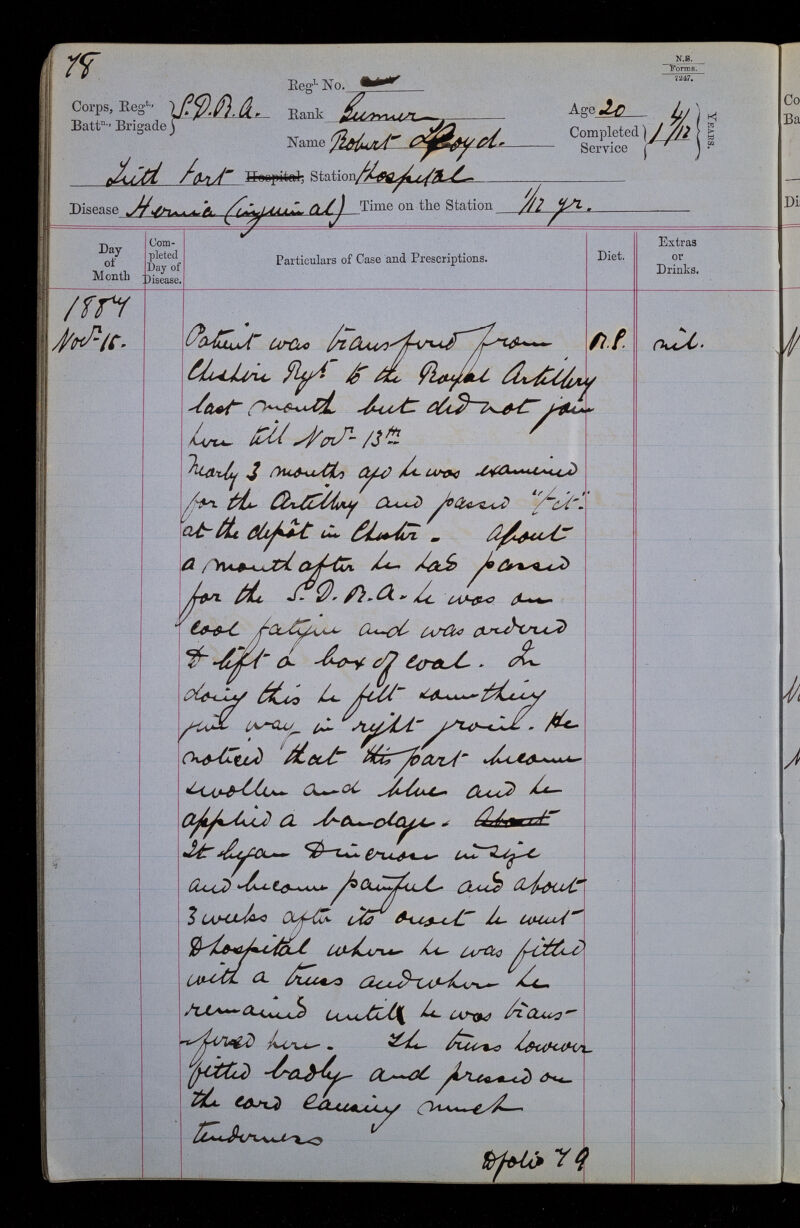 78
N.S.
Forms.
7247.
Regl. No.
Corps, Regt., Battn., Brigade } S.D.R.A.
Rank Gunner
Name Robert Lloyd.
Age 20
Completed Service } 1 4/12 YEARS.
Fort Hospital, Station Hospital
Disease Hernia (inguinal) Time on the Station 1/12 yr.
Day of Month
Completed Day of Disease.
Particulars of Case and Prescriptions.
Diet.
Extras or Drinks.
1887
Novr. 15. Patient was transfered from R.P. nil.
Cheshire Regt to the Royal Artillery
last month but did not join
here till Novr 13th
Nearly 3 months ago he was examined
for the Artillery and passed "fit".
at the depôt in Chester. About
a month after he had passed
for the S.D.R.A. he was on
coal fatigue and was ordered
to lift a box of coal. In
doing this he felt something
give way in right groin. He
noticed that this part became
swollen and blue and he
applied a bandage. About
It began to increase in size
and became painful and about
3 weeks after its onset he went
to hospital where he was fitted
with a truss and where he
remained until he was trans-
-fered here. The truss however
fitted badly and pressed on
the cord causing much
tenderness
to folio 79
Co
Ba
Di